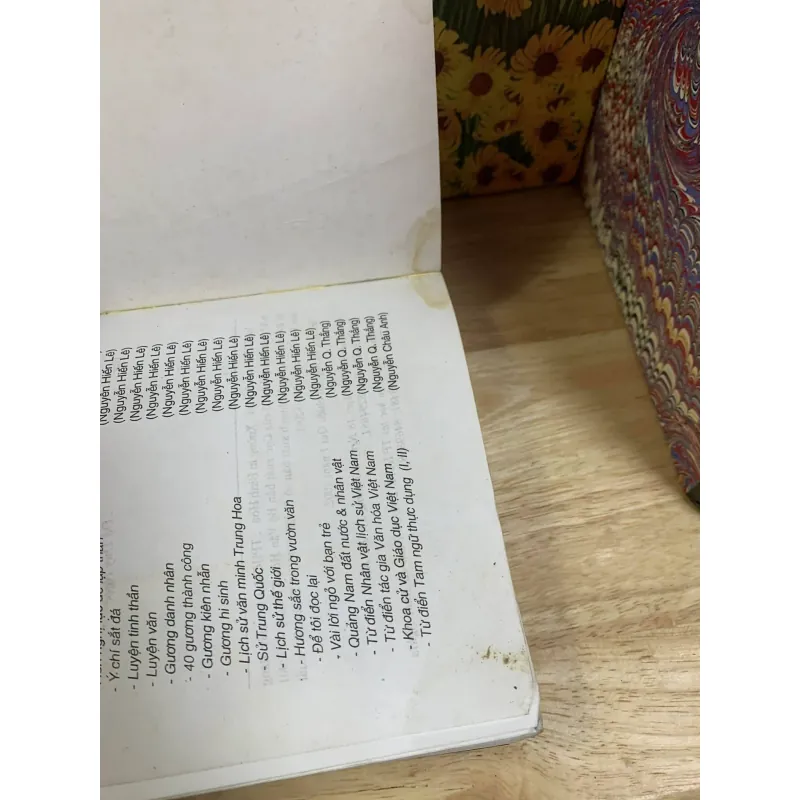 (Nguyễn Hiến Lê)
- Ý chí sắt đá (Nguyễn Hiến Lê)
- Luyện tinh thần (Nguyễn Hiến Lê)
- Luyện văn (Nguyễn Hiến Lê)
- Gương danh nhân (Nguyễn Hiến Lê)
- 40 gương thành công (Nguyễn Hiến Lê)
- Gương kiên nhẫn (Nguyễn Hiến Lê)
- Gương hi sinh (Nguyễn Hiến Lê)
- Lịch sử văn minh Trung Hoa (Nguyễn Hiến Lê)
- Sử Trung Quốc (Nguyễn Hiến Lê)
- Lịch sử thế giới (Nguyễn Hiến Lê)
- Hương sắc trong vườn văn (Nguyễn Hiến Lê)
- Để tôi đọc lại (Nguyễn Hiến Lê)
- Vài lời ngỏ với bạn trẻ (Nguyễn Hiến Lê)
- Quảng Nam đất nước & nhân vật (Nguyễn Q. Thắng)
- Từ điển Nhân vật lịch sử Việt Nam (Nguyễn Q. Thắng)
- Từ điển tác gia Văn hóa Việt Nam (Nguyễn Q. Thắng)
- Khoa cử và Giáo dục Việt Nam (Nguyễn Q. Thắng)
- Từ điển Tam ngữ thực dụng (I, II) (Nguyễn Châu Anh)